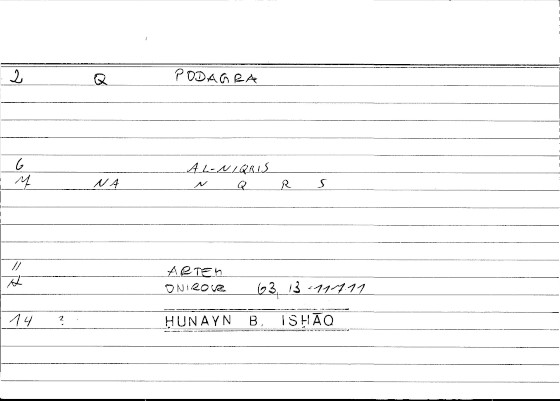 2 Q PODAGRA
6 AL-NIQRIS
M NA N Q R S
11 ARTEM
ONIROCR 63, 13
14 ? ḤUNAYN B. ISḤĀQ